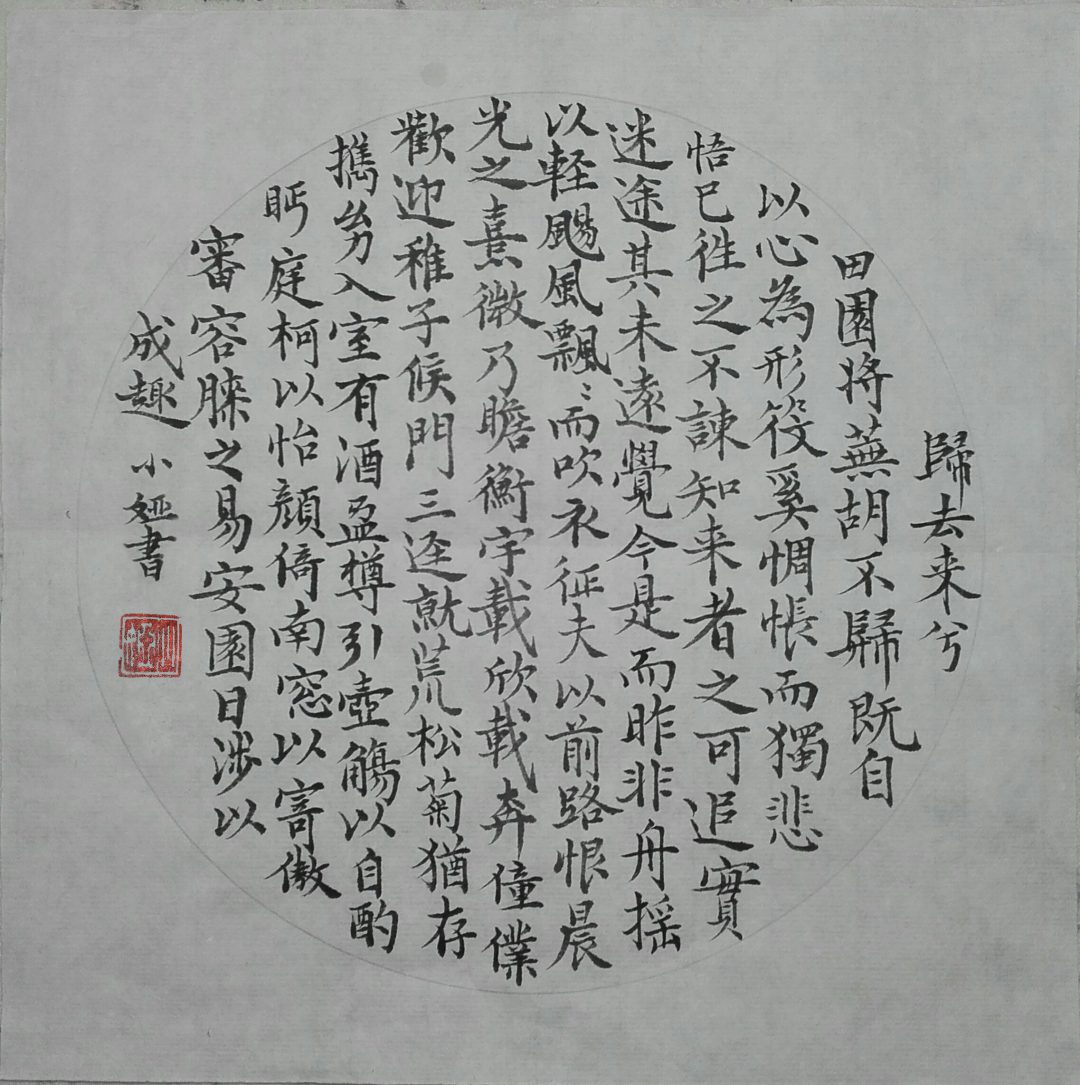 歸去来兮
田園將蕪胡不歸既自
以心為形役奚惆悵而獨悲
悟已往之不諫知来者之可追實
迷途其未遠覺今是而昨非舟摇
以輕颺風飄〻而吹衣征夫以前路恨晨
光之熹微乃瞻衡宇載欣載奔僮僕
歡迎稚子候門三逕就荒松菊猶存
攜幼入室有酒盈樽引壺觴以自酌
眄庭柯以怡顏倚南窓以寄傲
審容膝之易安園日涉以
成趣 小婭書